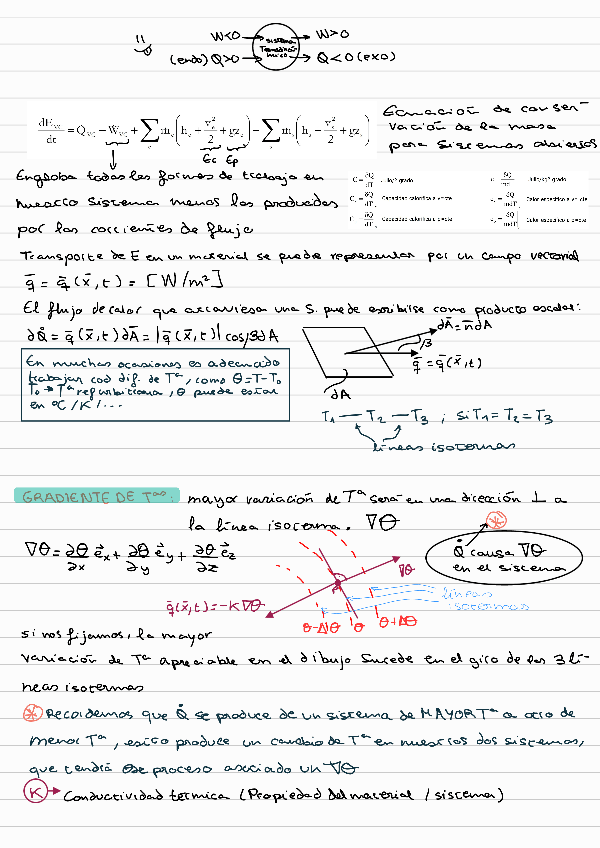 W<0 → sistema → W>0
(endo) Q>0 → Termodinámico → Q<0 (exo)
dE_vc/dt = Q_vc - W_vc + Σ m_e (h_e + v_e²/2 + gz_e) - Σ m_s (h_s + v_s²/2 + gz_s)
Ec Ep
Ecuación de conser-
vación de la masa
para sistemas abiertos
Engloba todas las formas de trabajo en
nuestro sistema menos las producidas
por las corrientes de flujo
C = δQ/dT Julio/º grado
C = δQ/dT Capacidad calorifica a v=cte
C = δQ/dT Capacidad calorifica a p=cte
Julio/kgº grado
Calor específico a v=cte
Calor específico a p=cte
Transporte de E en un material se puede representar por un campo vectorial
q̄ = q̄(x̄,t) = [W/m²]
El flujo de calor que atraviesa una S. puede escribirse como producto escalar:
∂Q̇ = q̄(x̄,t)dĀ = |q̄(x̄,t)| cosβdA
dĀ = n̄dA
β
q̄ = q̄(x̄,t)
dA
En muchas ocasiones es adecuado
trabajar con dif. de Tª, como θ=T-T₀
T₀ → Tª ref arbitraria, θ puede estar
en ºC/K/...
T₁ — T₂ — T₃ ; si T₁=T₂=T₃
líneas isotermas
GRADIENTE DE Tªs: mayor variación de Tª será en una dirección ⊥ a
la línea isoterma. ∇θ
∇θ = ∂θ/∂x e⃗x + ∂θ/∂y e⃗y + ∂θ/∂z e⃗z
Q̇ causa ∇θ
en el sistema
∇θ
líneas
isotermas
q̄(x̄,t) = -K∇θ
θ-Δθ θ θ+Δθ
si nos fijamos, la mayor
variación de Tª apreciable en el dibujo sucede en el giro de las 3 lí-
neas isotermas
* Recordemos que Q̇ se produce de un sistema de MAYOR Tª a otro de
menor Tª, esto produce un cambio de Tª en nuestros dos sistemas,
que tendrá ese proceso asociado un ∇θ
K → Conductividad térmica (Propiedad del material / sistema)